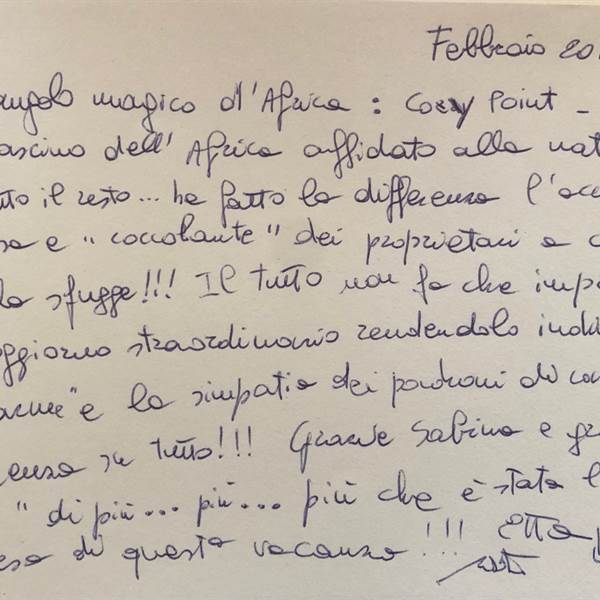 Febbraio 20
angolo magico d'Africa : Cozy Point -
fascino dell'Africa affidato alla nat
tto il resto... ha fatto la differenza l'acc
sa e "coccolante" dei proprietari a c
la sfugge!!! Il tutto non fa che imp
oggiorno straordinario rendendolo indi
e la simpatia dei padroni di ca
enza su tutto!!! Grazie Sabina e g
" di più... più... più che è stata l
esa di questa vacanza!!! Etta